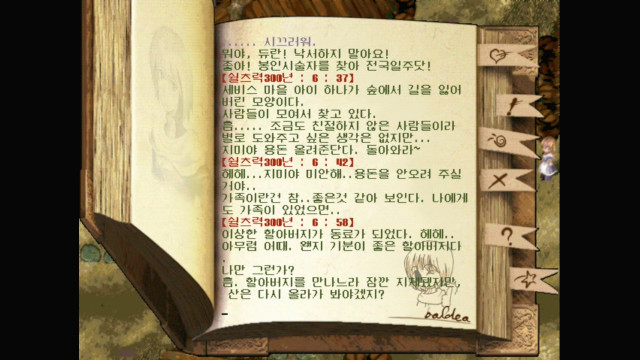 ...... 시끄러워.
뭐야, 듀란! 낙서하지 말아요!
좋아! 봉인시술자를 찾아 전국일주닷!
【쉴츠력300년 : 6 : 37】
세비스 마을 아이 하나가 숲에서 길을 잃어
버린 모양이다.
사람들이 모여서 찾고 있다.
흠..... 조금도 친절하지 않은 사람들이라
별로 도와주고 싶은 생각은 없지만...
지미야 용돈 올려준단다. 돌아와라~
【쉴츠력300년 : 6 : 42】
헤헤...지미야 미안해..용돈을 안오려 주실
거야..
가족이란건 참..좋은것 같아 보인다. 나에게
도 가족이 있었으면..
【쉴츠력300년 : 6 : 58】
이상한 할아버지가 동료가 되었다. 헤헤..
아무렴 어때. 왠지 기분이 좋은 할아버지다
.
나만 그런가?
흠, 할아버지를 만나느라 잠깐 지체됐지만,
산은 다시 올라가 봐야겠지?
baldea
?